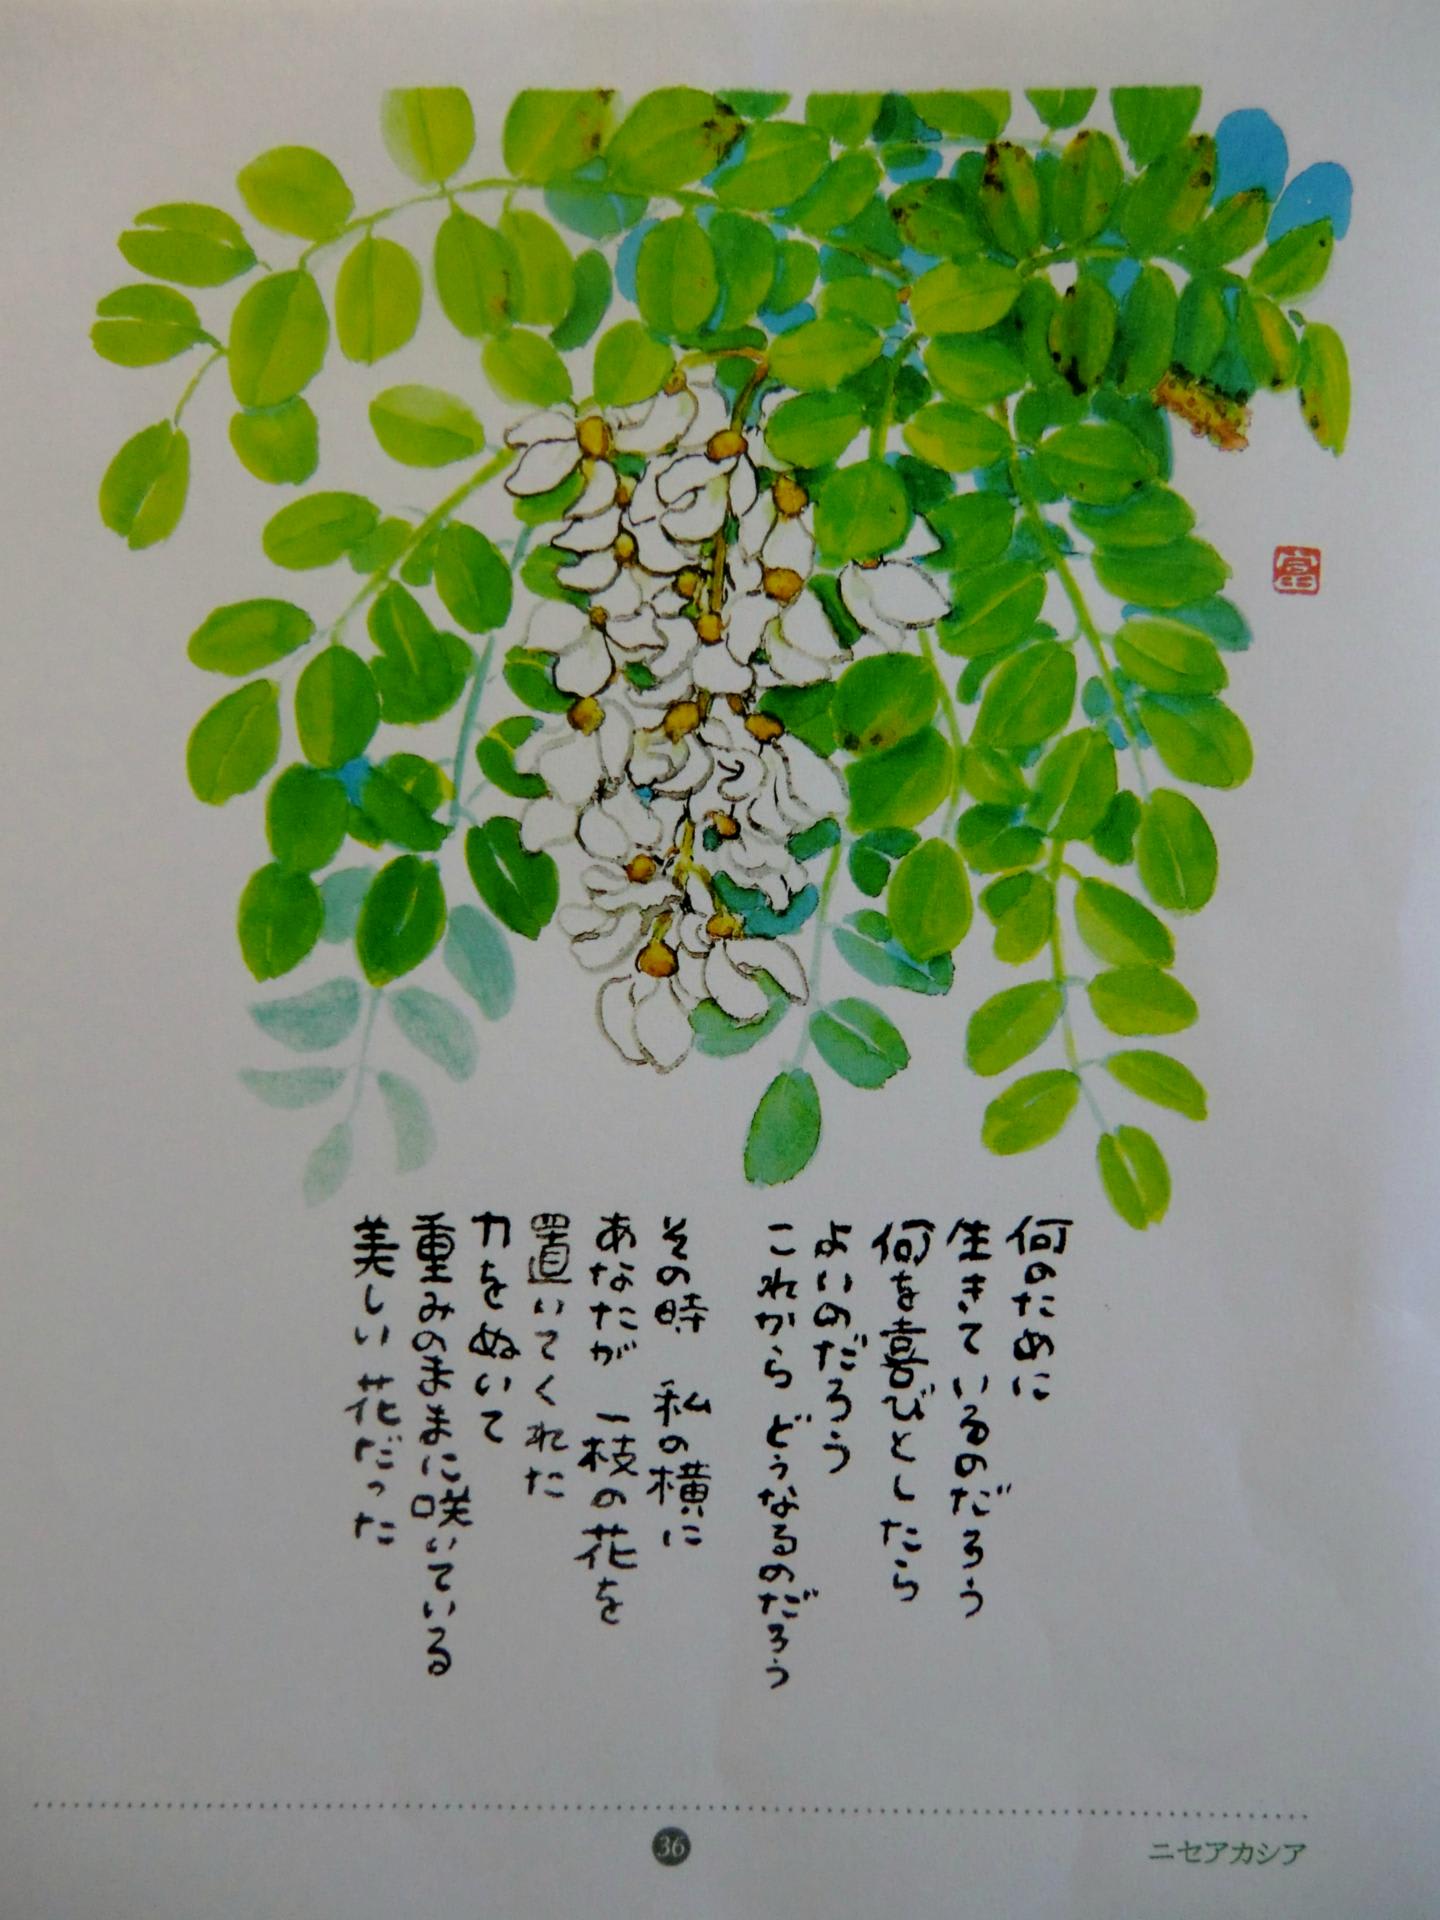 何のために
生きているのだろう
何を喜びとしたら
よいのだろう
これから どうなるのだろう
その時 私の横に
あなたが 一枝の花を
置いてくれた
力をぬいて
重みのままに咲いている
美しい花だった
富
36
ニセアカシア